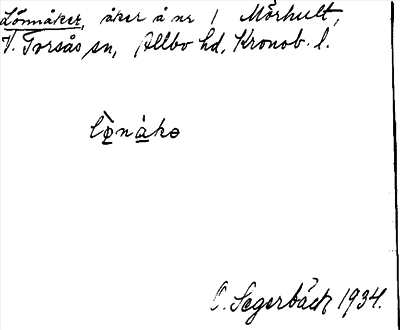 Lönnåker, åker å nr 1 Mörhult,
V. Torsås sn, Allbo hd, Kronob. l.
C. Segerbäck 1934.